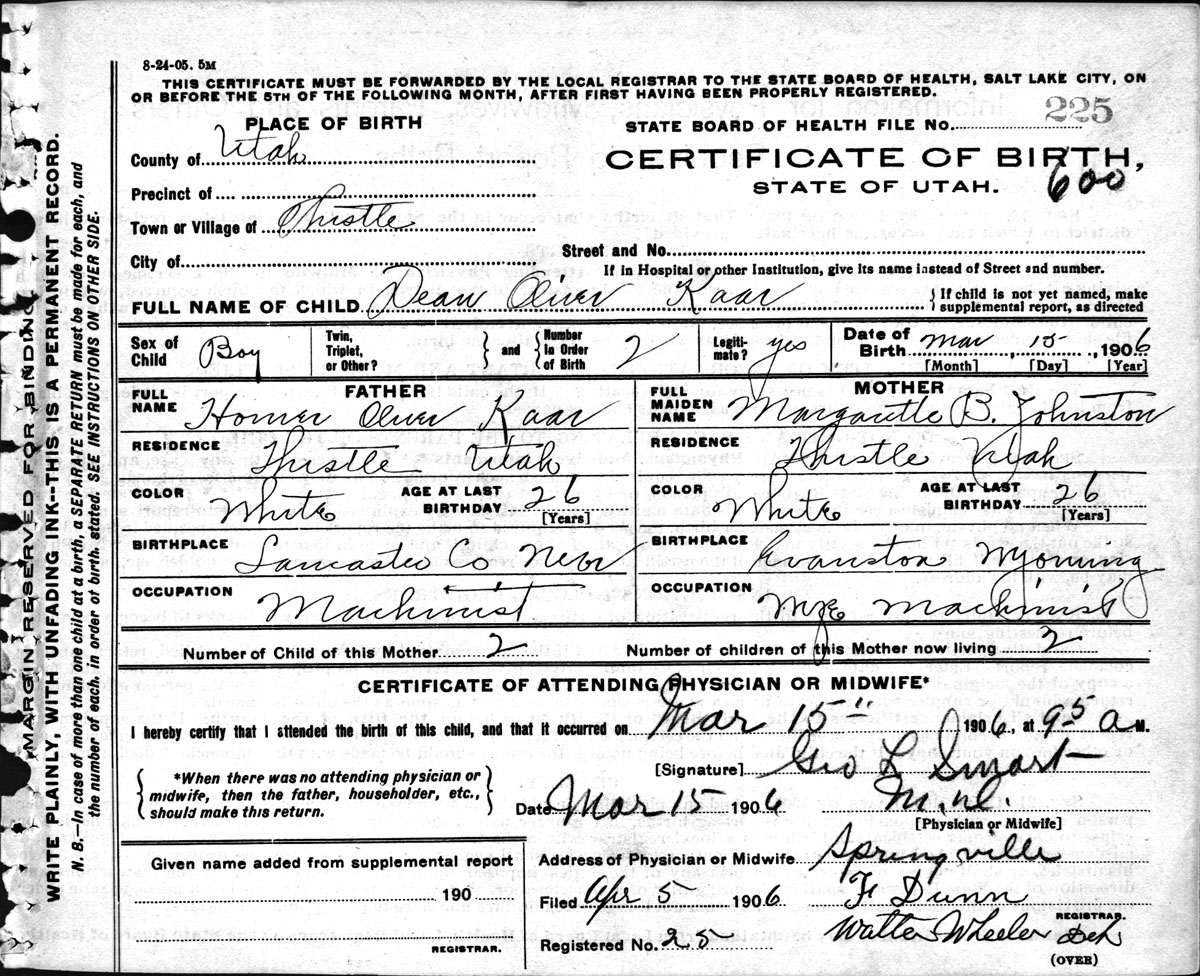 8-24-05. 5M
THIS CERTIFICATE MUST BE FORWARDED BY THE LOCAL REGISTRAR TO THE STATE BOARD OF HEALTH, SALT LAKE CITY, ON
OR BEFORE THE 5TH OF THE FOLLOWING MONTH, AFTER FIRST HAVING BEEN PROPERLY REGISTERED.
PLACE OF BIRTH
STATE BOARD OF HEALTH FILE No. 225
County of Utah
CERTIFICATE OF BIRTH,
STATE OF UTAH. 600
Precinct of
Town or Village of Thistle
Street and No.
City of
If in Hospital or other Institution, give its name instead of Street and number.
FULL NAME OF CHILD Dean Oliver Kaar { If child is not yet named, make supplemental report, as directed
Sex of Child Boy Twin, Triplet, or Other? and Number In Order of Birth 2 Legiti- mate? yes Date of Birth Mar, 15, 1906
[Month] [Day] [Year]
FATHER MOTHER
FULL NAME Homer Oliver Kaar FULL MAIDEN NAME Margarette B. Johnston
RESIDENCE Thistle Utah RESIDENCE Thistle Utah
COLOR White AGE AT LAST BIRTHDAY 26 [Years] COLOR White AGE AT LAST BIRTHDAY 26 [Years]
BIRTHPLACE Lancaster Co Nebr BIRTHPLACE Evanston Wyoming
OCCUPATION Machinist OCCUPATION Machinist
Number of Child of this Mother 2 Number of children of this Mother now living 2
CERTIFICATE OF ATTENDING PHYSICIAN OR MIDWIFE*
I hereby certify that I attended the birth of this child, and that it occurred on Mar 15" 1906, at 9 55 a M.
[Signature] Geo L Smart
*When there was no attending physician or midwife, then the father, householder, etc., should make this return.
Date Mar 15 1906 M.D.
[Physician or Midwife]
Given name added from supplemental report
Address of Physician or Midwife Springville
190
Filed Apr 5 1906 F Dunn
REGISTRAR.
Registered No. 25 Walter Wheeler Deh
REGISTRAR.
(OVER)
MARGIN RESERVED FOR BINDING
WRITE PLAINLY, WITH UNFADING INK--THIS IS A PERMANENT RECORD.
N. B.—In case of more than one child at a birth, a SEPARATE RETURN must be made for each, and
the number of each, in order of birth, stated. SEE INSTRUCTIONS ON OTHER SIDE.